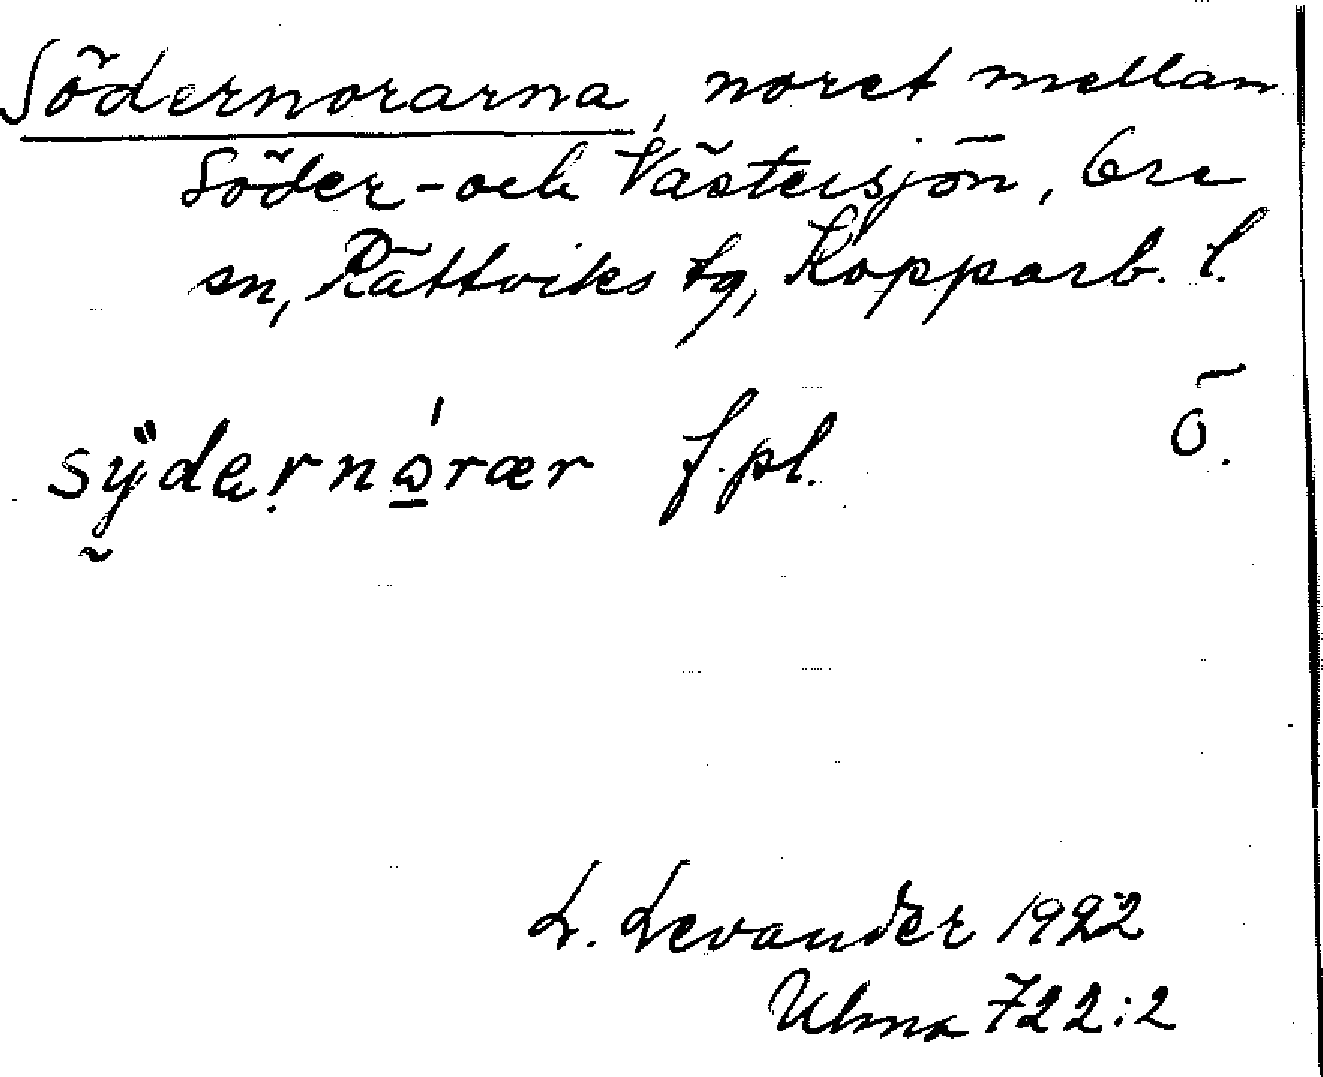 Södernorarna, noret mellan
Söder- och Västersjön, Ore
sn, Rättviks tg, Kopparb. l.
södernɷrær f. pl. Ö.
L. Levander 1922
Ulma 722:2